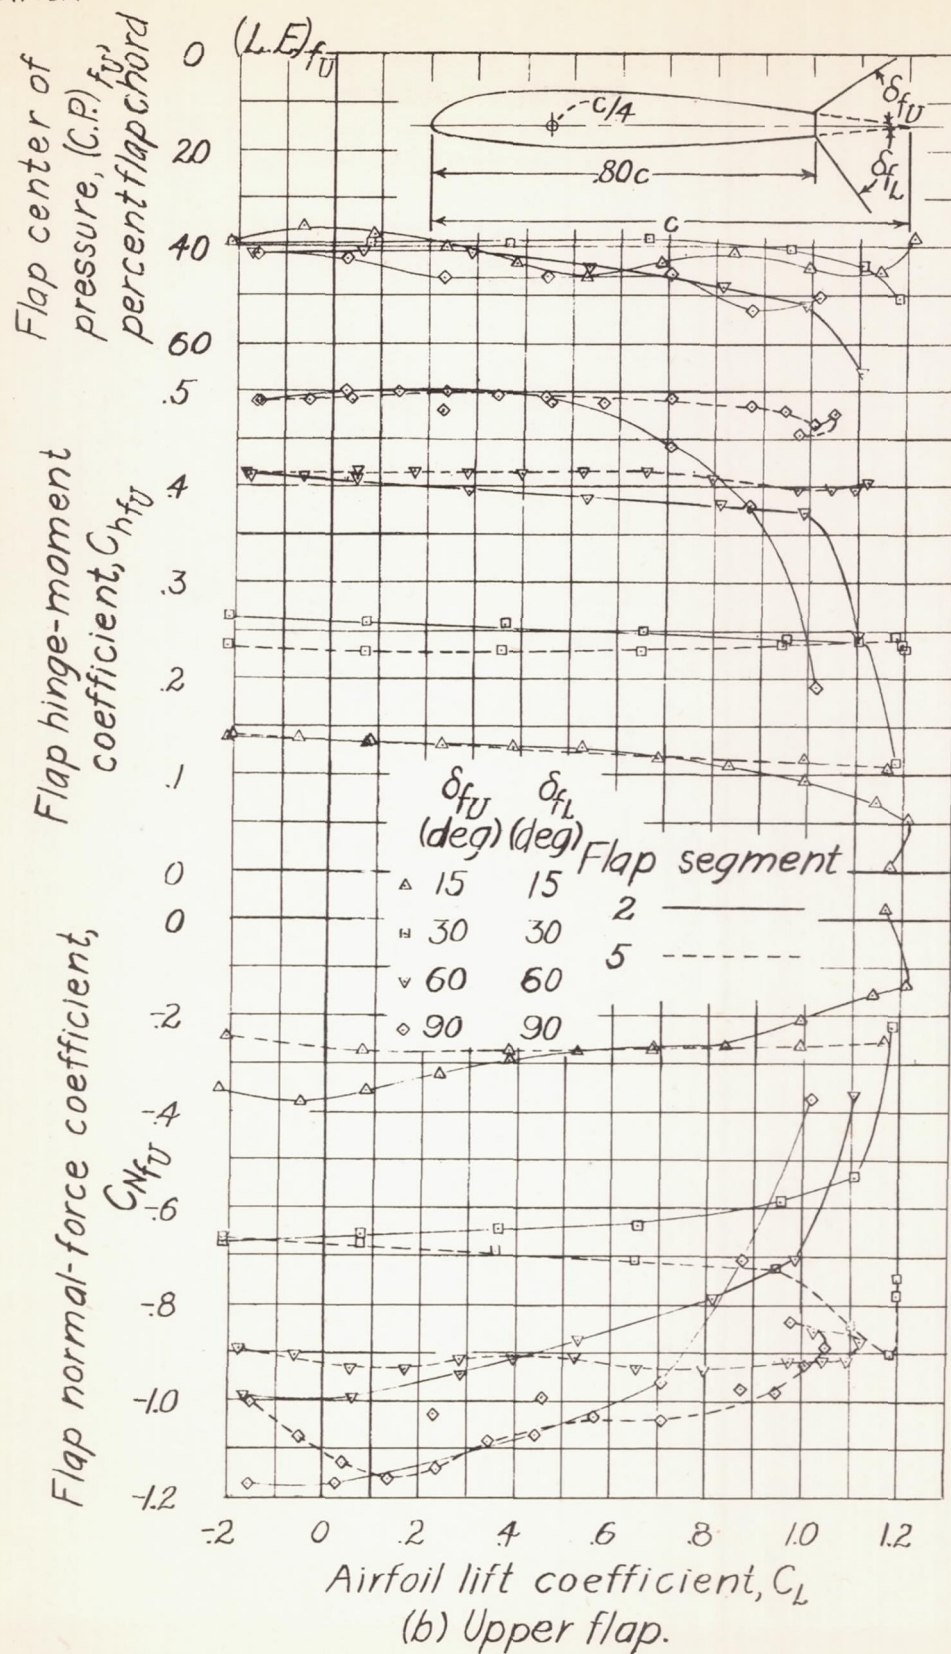 (L.E.)fU
Flap center of
pressure, (C.P.)fU,
percent flap chord
0
20
40
60
c/4
.80c
c
δfU
δfL
Flap hinge-moment
coefficient, ChfU
.5
.4
.3
.2
.1
0
δfU δfL
(deg) (deg) Flap segment
15 15
30 30
60 60
90 90
2
5
Flap normal-force coefficient,
CNfU
0
-.2
-.4
-.6
-.8
-1.0
-1.2
-.2 0 .2 .4 .6 .8 1.0 1.2
Airfoil lift coefficient, CL
(b) Upper flap.